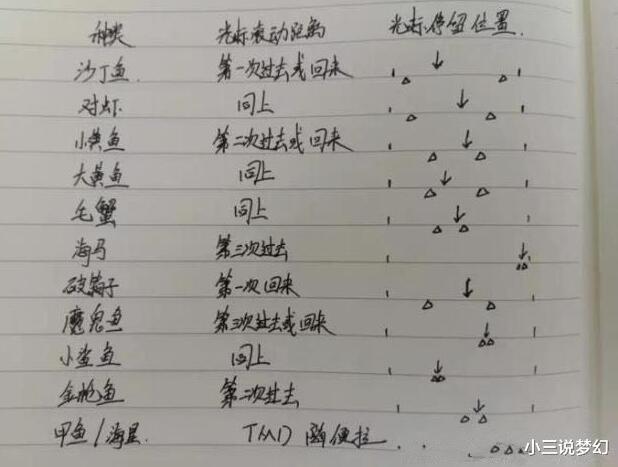 种类 光标滚动距离 光标停留位置.
沙丁鱼 第一次过去或回来
对虾 同上
小黄鱼 第二次过去或回来
大黄鱼 同上
毛蟹 同上
海马 第三次过去
破鞋子 第一次回来
魔鬼鱼 第三次过去或回来
小鲨鱼 同上
金枪鱼 第二次过去
甲鱼/海星. TMD 随便拉.
小三说梦幻